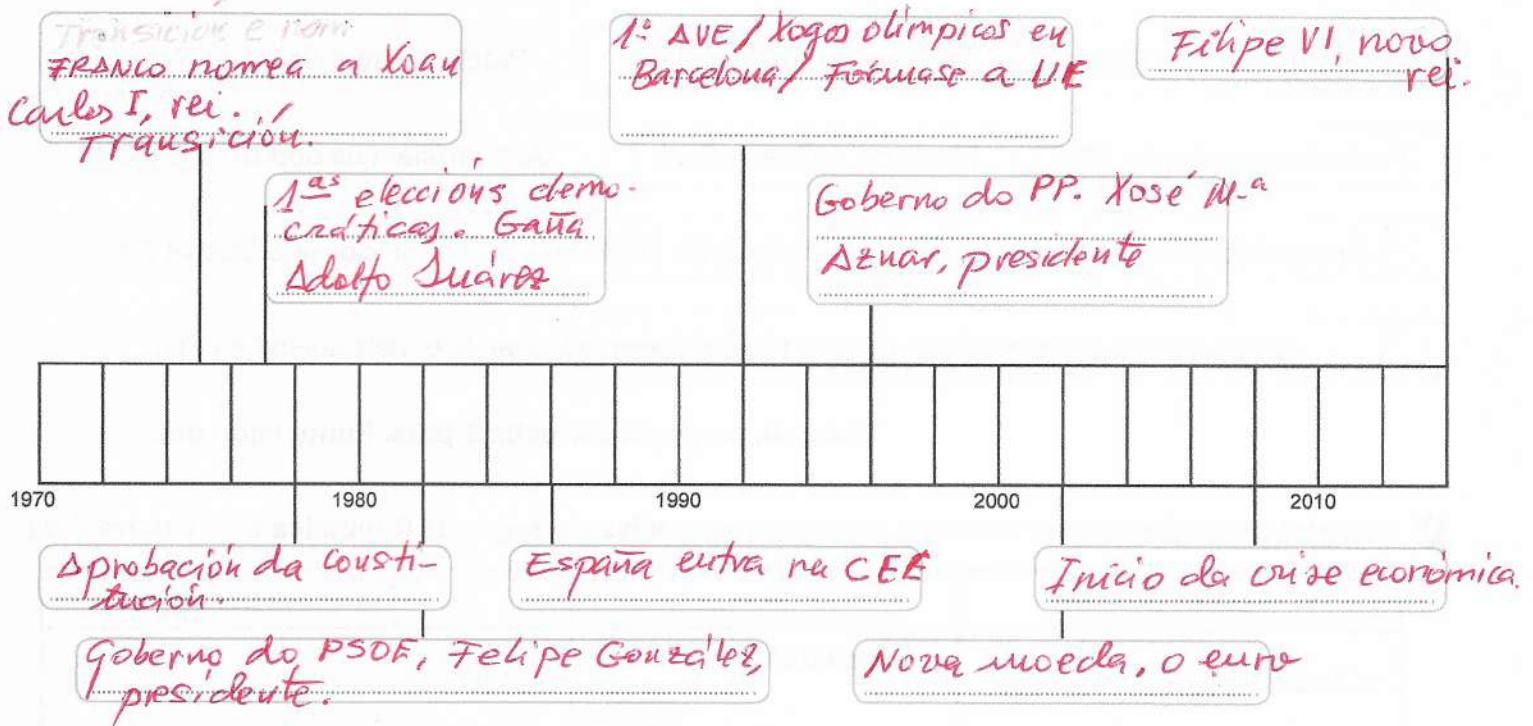 Transición e nom
FRANCO nomea a Xoan
Carlos I, rei. /
Transición.
1º AVE / Xogos olímpicos en
Barcelona / Fórmase a UE
Filipe VI, novo
rei.
1as eleccións demo-
cráticas. Gaña
Adolfo Suárez
Goberno do PP. Xosé M.a
Aznar, presidente
1970 1980 1990 2000 2010
Aprobación da consti-
tución.
España entra na CEE
Inicio da crise económica.
Goberno do PSOE, Felipe González,
presidente.
Nova moeda, o euro